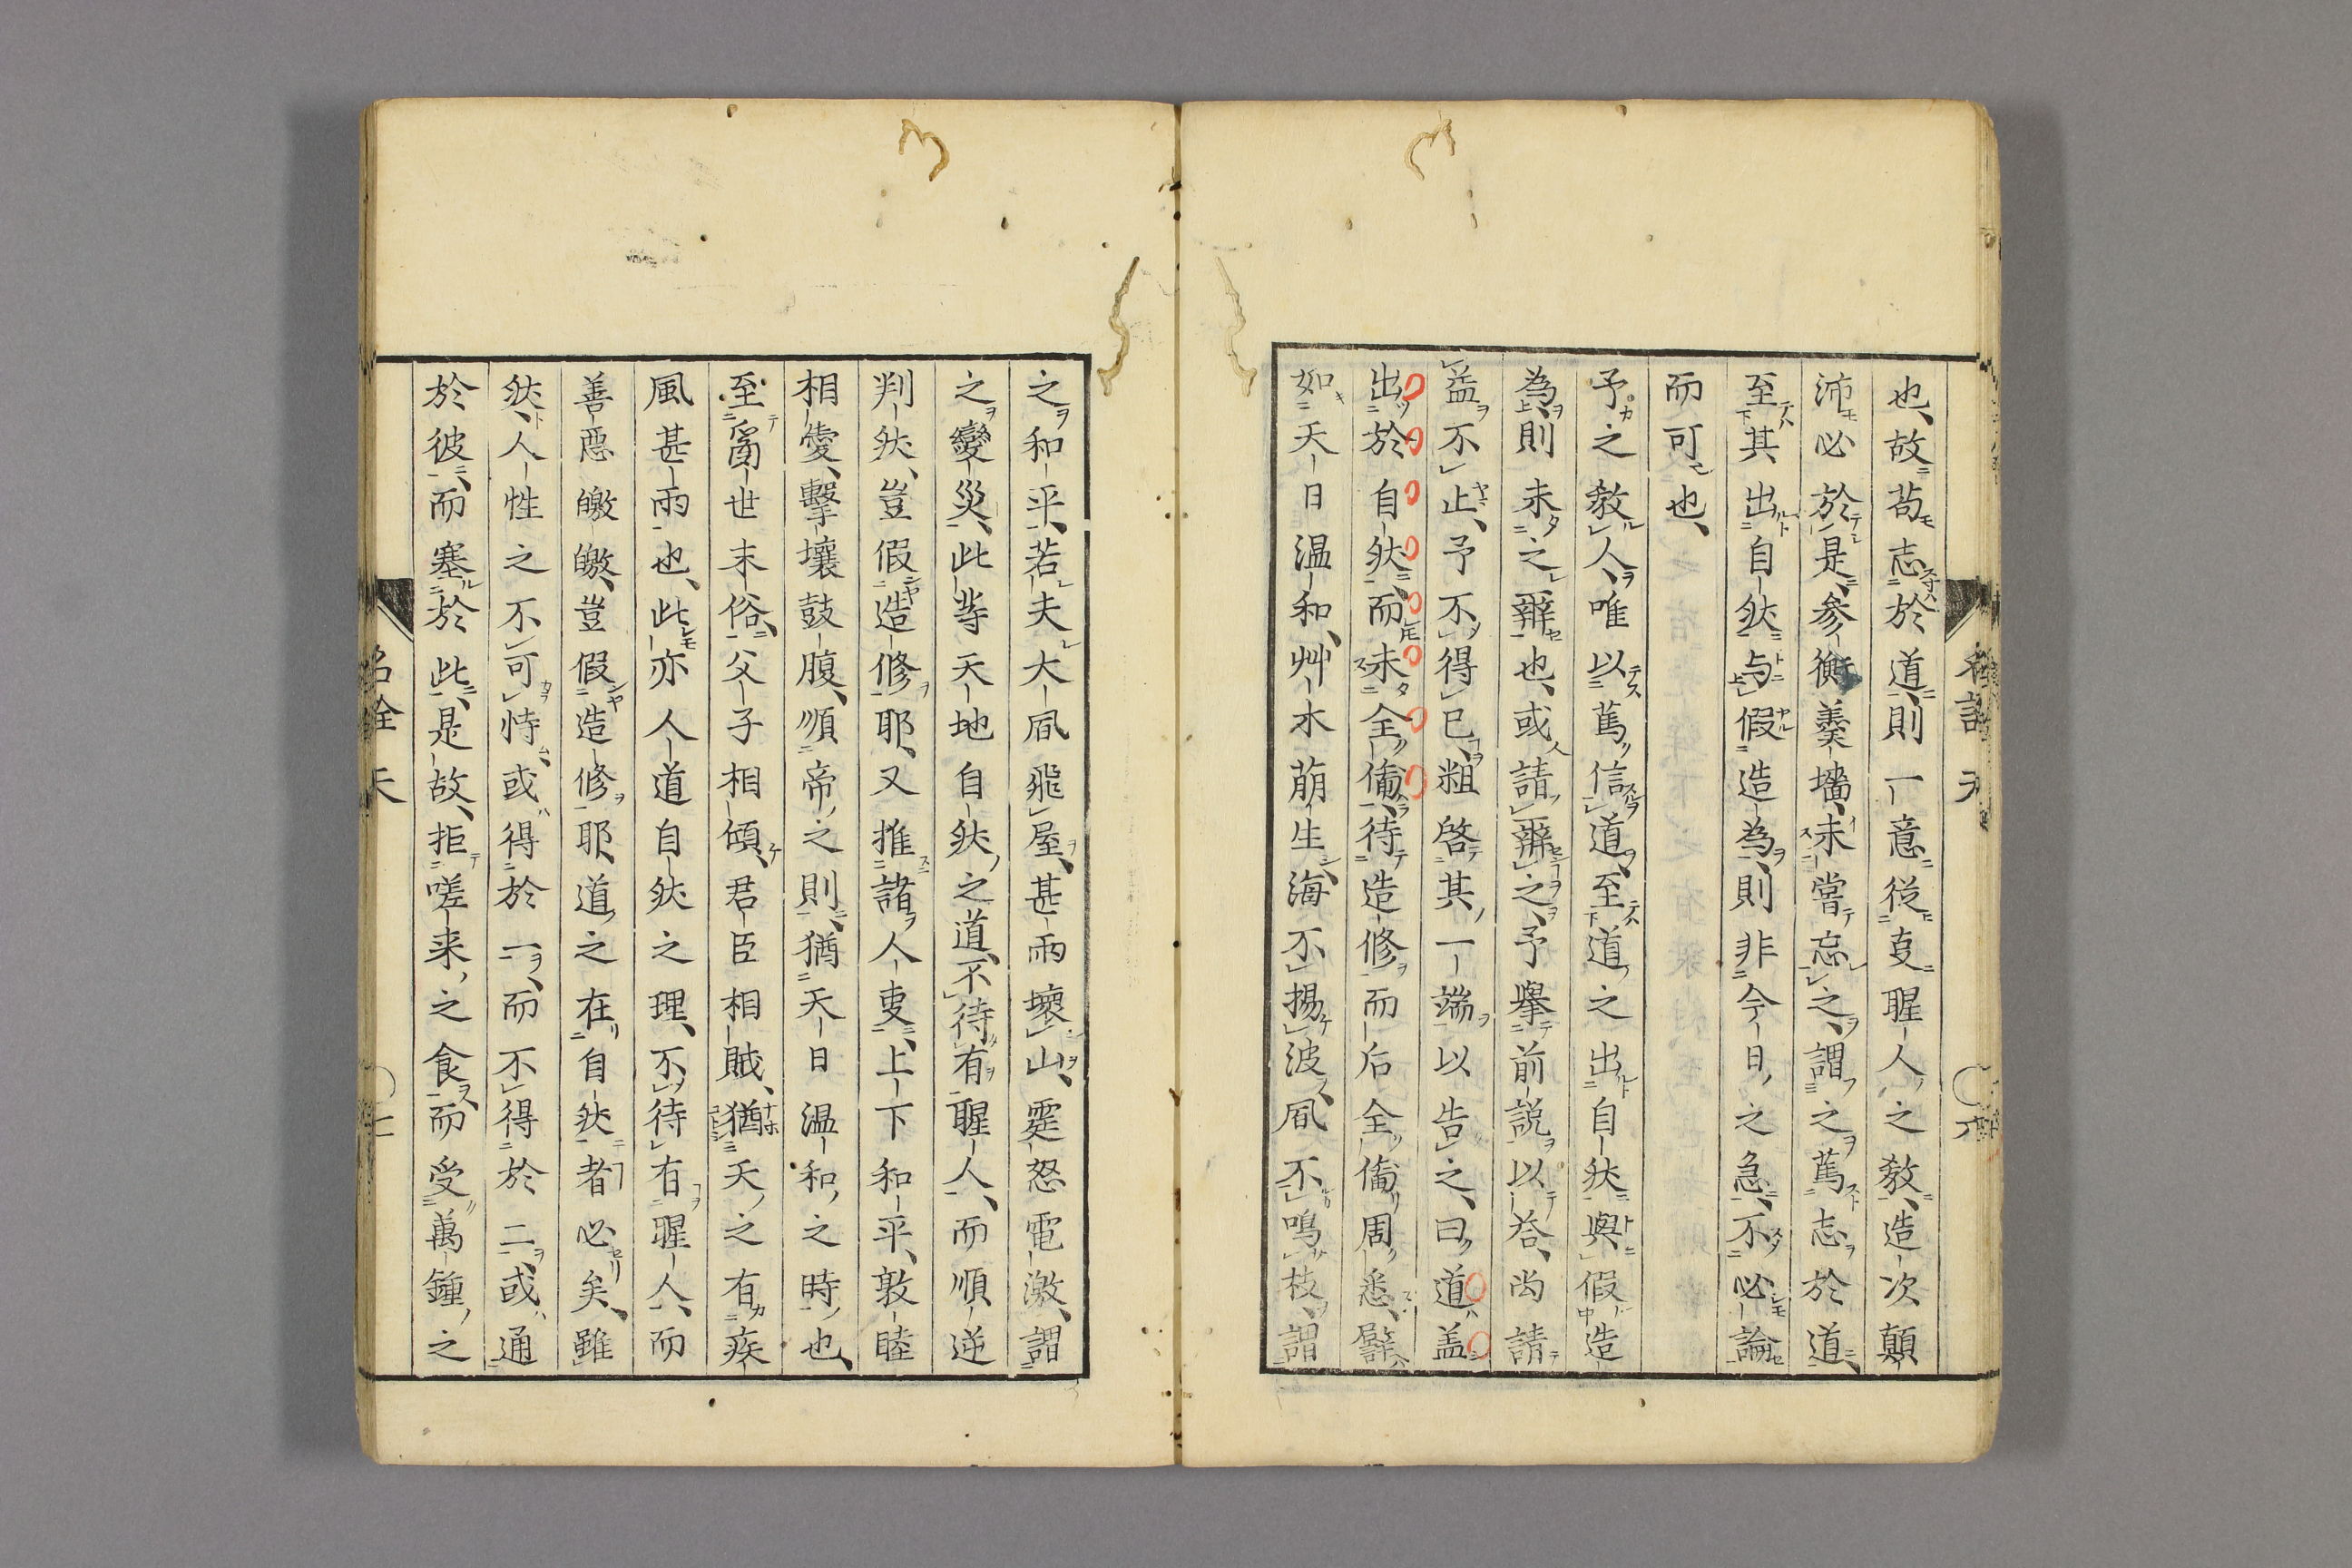 也、故苟志於道、則一意從叓聖人之教、造次顛
沛必於是、参衡羮墻、未嘗忘之、謂之篤志於道、
至其出自然与假造為、則非今日之急、不必論
而可也、
予之教人、唯以篤信道、至道之出自然與假造
為、則未之辯也、或請辯之、予擧前説以荅、尚請
益不止、予不得已、粗啓其一端以告之、曰道盖
出於自然、而未全備、待造修而后全備周悉、譬
如天日温和、艸木萠生、海不揚波、凬不鳴枝、謂
之和平、若夫大凬飛屋、甚雨壞山、霆怒電激、謂
之變災、此等天地自然之道、不待有聖人、而順逆
判然、豈假造修耶、又推諸人叓、上下和平、敦睦
相愛、擊壤鼓腹、順帝之則、猶天日温和之時也、
至啇世末俗、父子相傾、君臣相賊、猶天之有疾
風甚雨也、此亦人道自然之理、不待有聖人、而
善惡皦皦、豈假造修耶、道之在自然者必矣、雖
然、人性之不可恃、或得於一、而不得於二、或通
於彼、而塞於此、是故、拒嗟来之食、而受萬鍾之